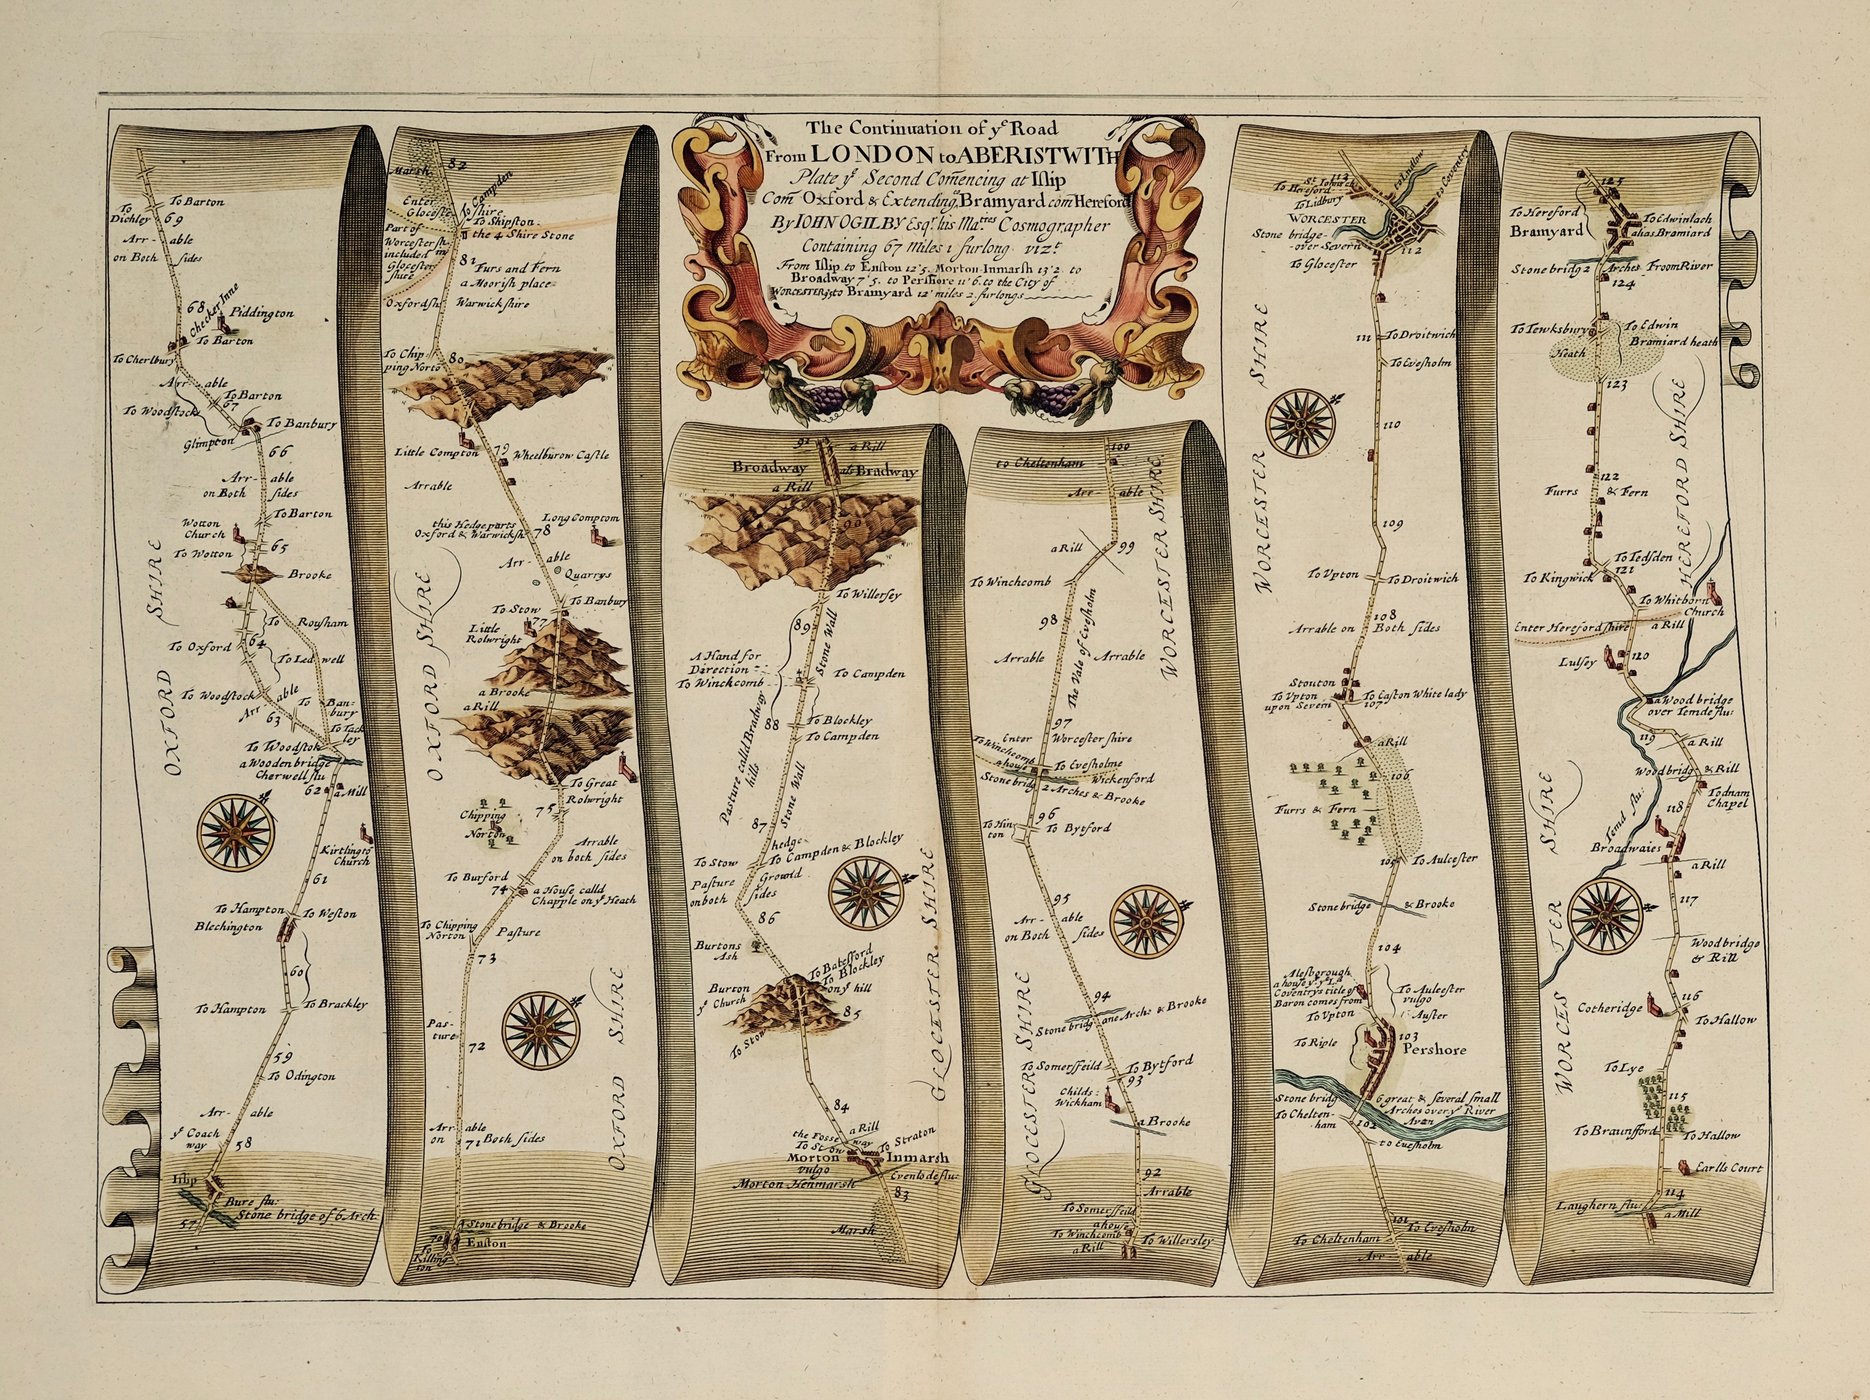 The Continuation of yͤ Road
From LONDON to ABERISTWITH
Plate yͤ Second Com̄encing at Islip
Com̄ Oxford & Extending to Bramyard com̄ Hereford
By IOHN OGILBY Esqr. his Matties Cosmographer
Containing 67 Miles 1 furlong vizt.
From Islip to Enston 12'5. Morton Inmarsh 13'2. to
Broadway 7'5. to Pershore 11'6. to the City of
to Bramyard 12' miles 2 furlongs
To Barton
To Dichley
69
Arr- able
on Both sides
68
Checker Inne
Piddington
To Barton
To Cherlbury
Arr able
To Barton
67
To Woodstock
To Banbury
Glimpton
66
Arr- able
on Both sides
To Barton
Wotton
Church
65
To Wotton
Brooke
To Rousham
64
To Oxford
To Ledwell
To Woodstock
Arr able
To Ban-
bury
63
To Tack
ley
To Woodstok
a Wooden bridge
Cherwell flu
62
a Mill
Kirtlingto
Church
61
To Hampton
To Weston
Blechington
60
To Hampton
To Brackley
59
To Odington
Arr- able
yͤ Coach
way
58
Islip
Bure flu:
Stone bridge of 6 Arch
57
OXFORD SHIRE
Marsh
82
To Campden
Enter
Glocester shire
To Shipston
the 4 Shire Stone
Part of
Worcester sh.
included in
Glocester
shire
81
Furs and Fern
a Moorish place
Oxford sh:
Warwick shire
To Chip-
ping Norto
80
Little Compton
79
Wheelburow Castle
Arrable
this Hedge parts
Oxford & Warwick sh
78
Long Comptom
Arr- able
Quarrys
To Stow
To Banbury
77
Little
Rolwright
a Brooke
a Rill
To Great
Rolwright
75
Chipping
Norton
Arrable
on both sides
To Burford
74
a House calld
Chapple on yͤ Heath
To Chipping
Norton
Pasture
73
Pas-
ture
72
Arr- able
on Both sides
71
A Stone bridge & Brooke
70
Enston
To
Killing
ton
OXFORD SHIRE
OXFORD SHIRE
91
a Rill
Broadway
als Bradway
a Rill
90
To Willersey
89
Stone Wall
A Hand for
Direction
To Winchcomb
To Campden
88
To Blockley
To Campden
Pasture calld Bradway
hills
Stone Wall
87
hedge
To Stow
To Campden & Blockley
Pasture
on both
Growid
sides
86
Burtons
Ash
To Batesford
To Blockley
on yͤ hill
Burton
yͤ Church
85
To Stow
84
a Rill
the Fosse
way
To Stow
To Straton
Morton
Inmarsh
vulgo
Morton Henmarsh
Evenlode flu:
83
Marsh
GLOCESTER SHIRE
100
to Cheltenham
Arr- able
a Rill
99
To Winchcomb
98
The Vale of Evesholm
Arrable
Arrable
97
Enter
Worcester shire
To Winchcomb
a house
To Evesholme
Wickenford
Stone bridg 2 Arches & Brooke
96
To Hin
ton
To Bytford
95
Arr- able
on Both sides
94
Stone bridg one Arche & Brooke
To Somerffeild
To Bytford
93
Childs-
Wickham
a Brooke
92
Arrable
To Somerffeild
a house
To Winchcomb
To Willersley
a Rill
WORCESTER SHIRE
GLOCESTER SHIRE
to Ludlow
to Coventry
To Hereford
To Lidbury
WORCESTER
Stone bridge-
over Severn
112
To Glocester
111
To Droitwich
To Evesholm
110
109
To Vpton
To Droitwich
108
Arrable on Both sides
Stouton
To Vpton
upon Severn
To Caston White lady
107
a Rill
106
Furrs & Fern
105
To Aulcester
Stone bridge & Brooke
104
Alesborough
a house yͭ yͤ Ld
Coventrys title of
Baron comes from
To Aulcester
vulgo
Auster
To Vpton
To Riple
103
Pershore
Stone bridg
6 great & several small
Arches over yͤ River
Avan
To Chelten-
ham
102
to Evesholm
101
To Evesholm
To Cheltenham
Arr- able
WORCESTER SHIRE
125
To Hereford
Bramyard
To Edwinlach
alias Bramiard
Stone bridg 2 Arches Froom River
124
To Tewksbury
To Edwin
Bramiard heath
Heath
123
122
Furrs & Fern
To Tedsden
121
To Kingwick
To Whitborn
Church
a Rill
Enter Hereford shire
Lulsey
120
a Wood bridge
over Temde flu:
119
a Rill
Wood bridg & Rill
Todnam
Chapel
118
Temd flu.
Broadwaies
a Rill
117
Wood bridge
& Rill
116
Cotheridge
To Hallow
To Lye
115
To Braunfford
To Hallow
Earlls Court
114
Laughern flu:
a Mill
HEREFORD SHIRE
WORCES TER SHIRE